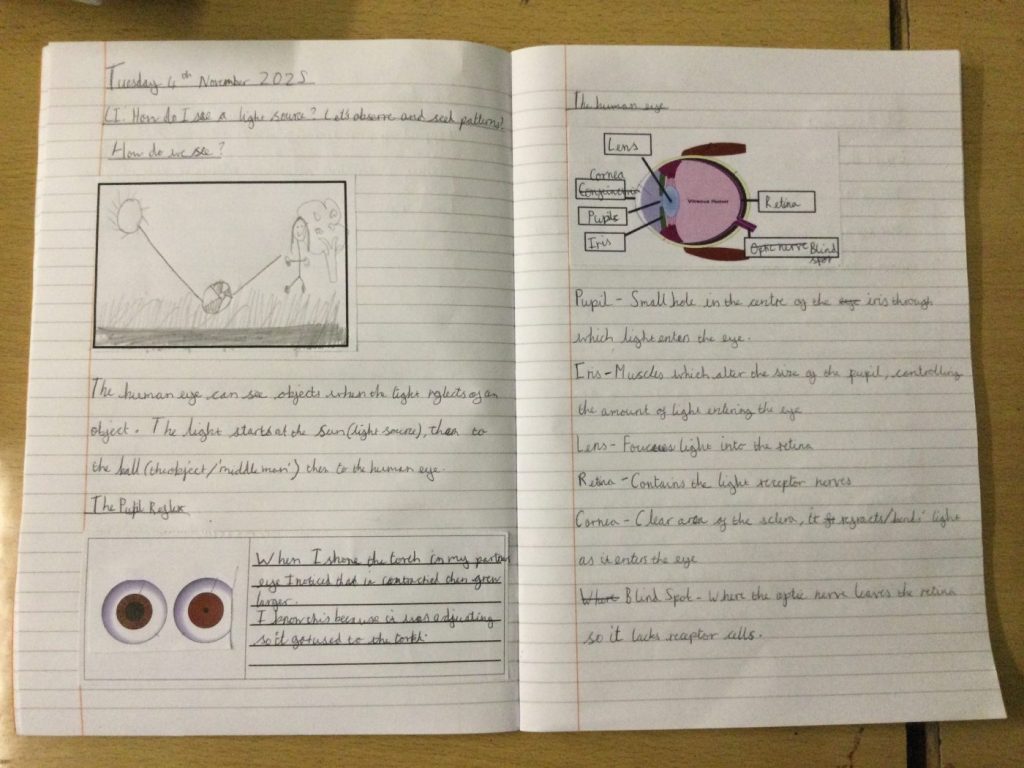 Tuesday 4th November 2025
LI: How do I see a light source? Let's observe and seek patterns?
How do we see?
The human eye can see objects when the light reflects of an
object. The light starts at the Sun (light source), then to
the ball (the object/'middle man') then to the human eye.
The Pupil Reflex
When I shone the torch in my partner
eye I noticed that it contracted then grew
larger.
I know this because it was adjusting
so it got used to the torch.
The human eye
Lens
Cornea
Pupil
Iris
Vitreous Humor
Retina
Optic nerve Blind
spot
Pupil - Small hole in the centre of the eye iris through
which light enters the eye.
Iris - Muscles which alter the size of the pupil, controlling
the amount of light entering the eye
Lens - light into the retina
Retina - Contains the light receptor nerves
Cornea - Clear area of the sclera, it refracts/'bends' light
as it enters the eye
Where Blind Spot - Where the optic nerve leaves the retina
so it lacks receptor cells.